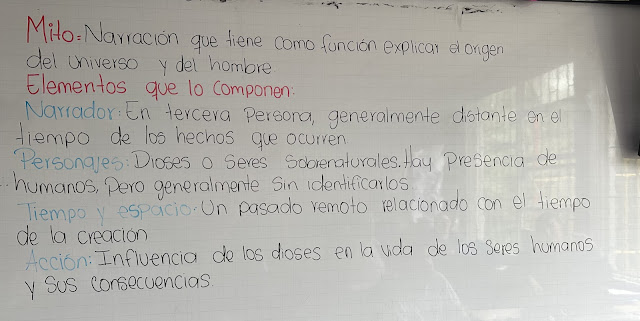 Mito: Narración que tiene como función explicar el origen
del universo y del hombre.
Elementos que lo componen:
Narrador: En tercera persona, generalmente distante en el
tiempo de los hechos que ocurren
Personajes: Dioses o seres sobrenaturales. Hay presencia de
humanos, pero generalmente sin identificarlos
Tiempo y espacio: Un pasado remoto relacionado con el tiempo
de la creación
Acción: Influencia de los dioses en la vida de los seres humanos
y sus consecuencias.